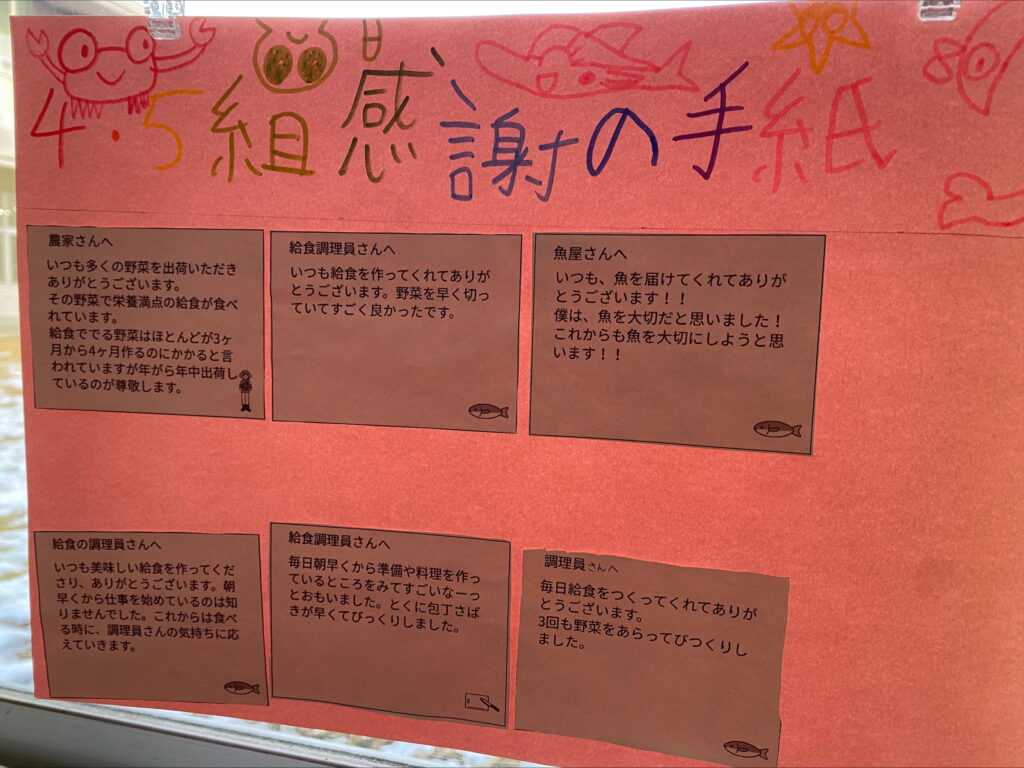 4・5組感謝の手紙
農家さんへ
いつも多くの野菜を出荷いただき
ありがとうございます。
その野菜で栄養満点の給食が食べ
れています。
給食ででる野菜はほとんどが3ヶ
月から4ヶ月作るのにかかると言
われていますが年がら年中出荷し
ているのが尊敬します。
給食調理員さんへ
いつも給食を作ってくれてありが
とうございます。野菜を早く切っ
ていてすごく良かったです。
魚屋さんへ
いつも、魚を届けてくれてありが
とうございます！！
僕は、魚を大切だと思いました！
これからも魚を大切にしようと思
います！！
給食の調理員さんへ
いつも美味しい給食を作ってくだ
さり、ありがとうございます。朝
早くから仕事を始めているのは知
りませんでした。これからは食べ
る時に、調理員さんの気持ちに応
えていきます。
給食調理員さんへ
毎日朝早くから準備や料理を作っ
ているところをみてすごいなーっ
とおもいました。とくに包丁さば
きが早くてびっくりしました。
調理員さんへ
毎日給食をつくってくれてありが
とうございます。
3回も野菜をあらってびつくりし
ました。